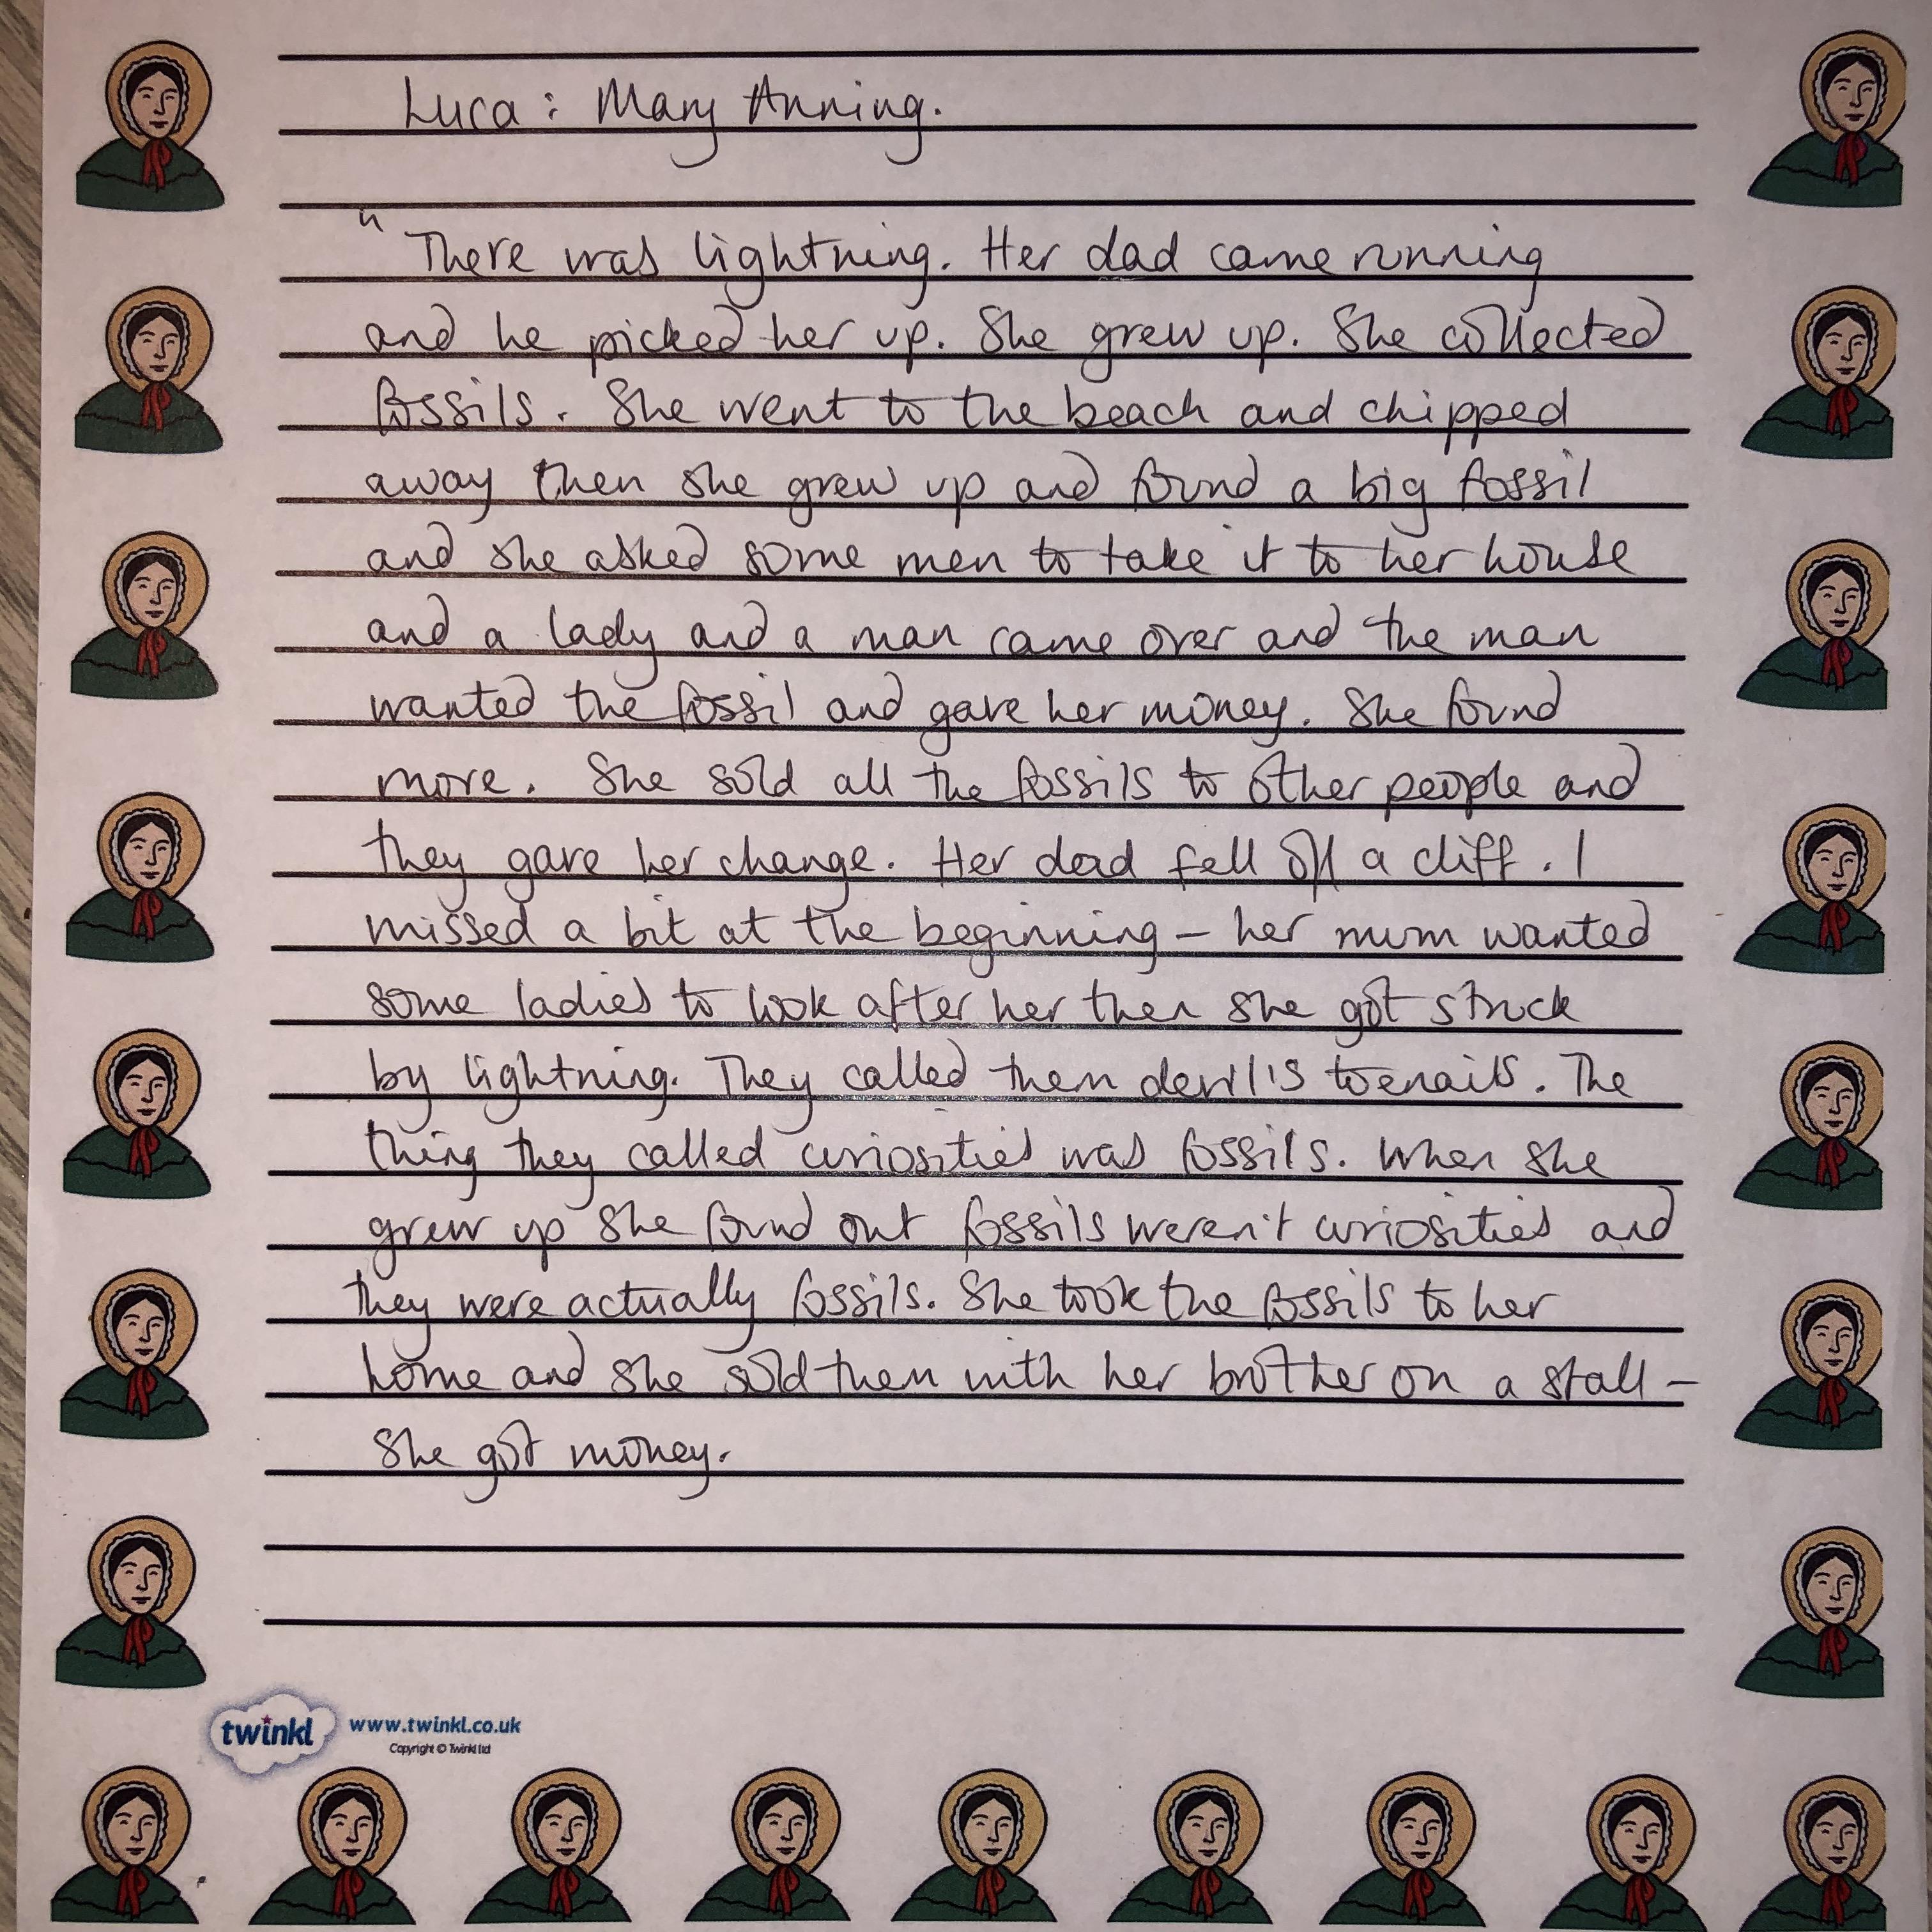 Luca : Mary Anning.
" There was lightning. Her dad came running
and he picked her up. She grew up. She collected
fossils. She went to the beach and chipped
away then she grew up and found a big fossil
and she asked some men to take it to her house
and a lady and a man came over and the man
wanted the fossil and gave her money. She found
more. She sold all the fossils to other people and
they gave her change. Her dad fell off a cliff. I
missed a bit at the beginning – her mum wanted
some ladies to look after her then she got struck
by lightning. They called them devil's toenails. The
thing they called curiosities was fossils. When she
grew up she found out fossils weren't curiosities and
they were actually fossils. She took the fossils to her
home and she sold them with her brother on a stall –
she got money.
twinkl www.twinkl.co.uk
Copyright © Twinkl Ltd